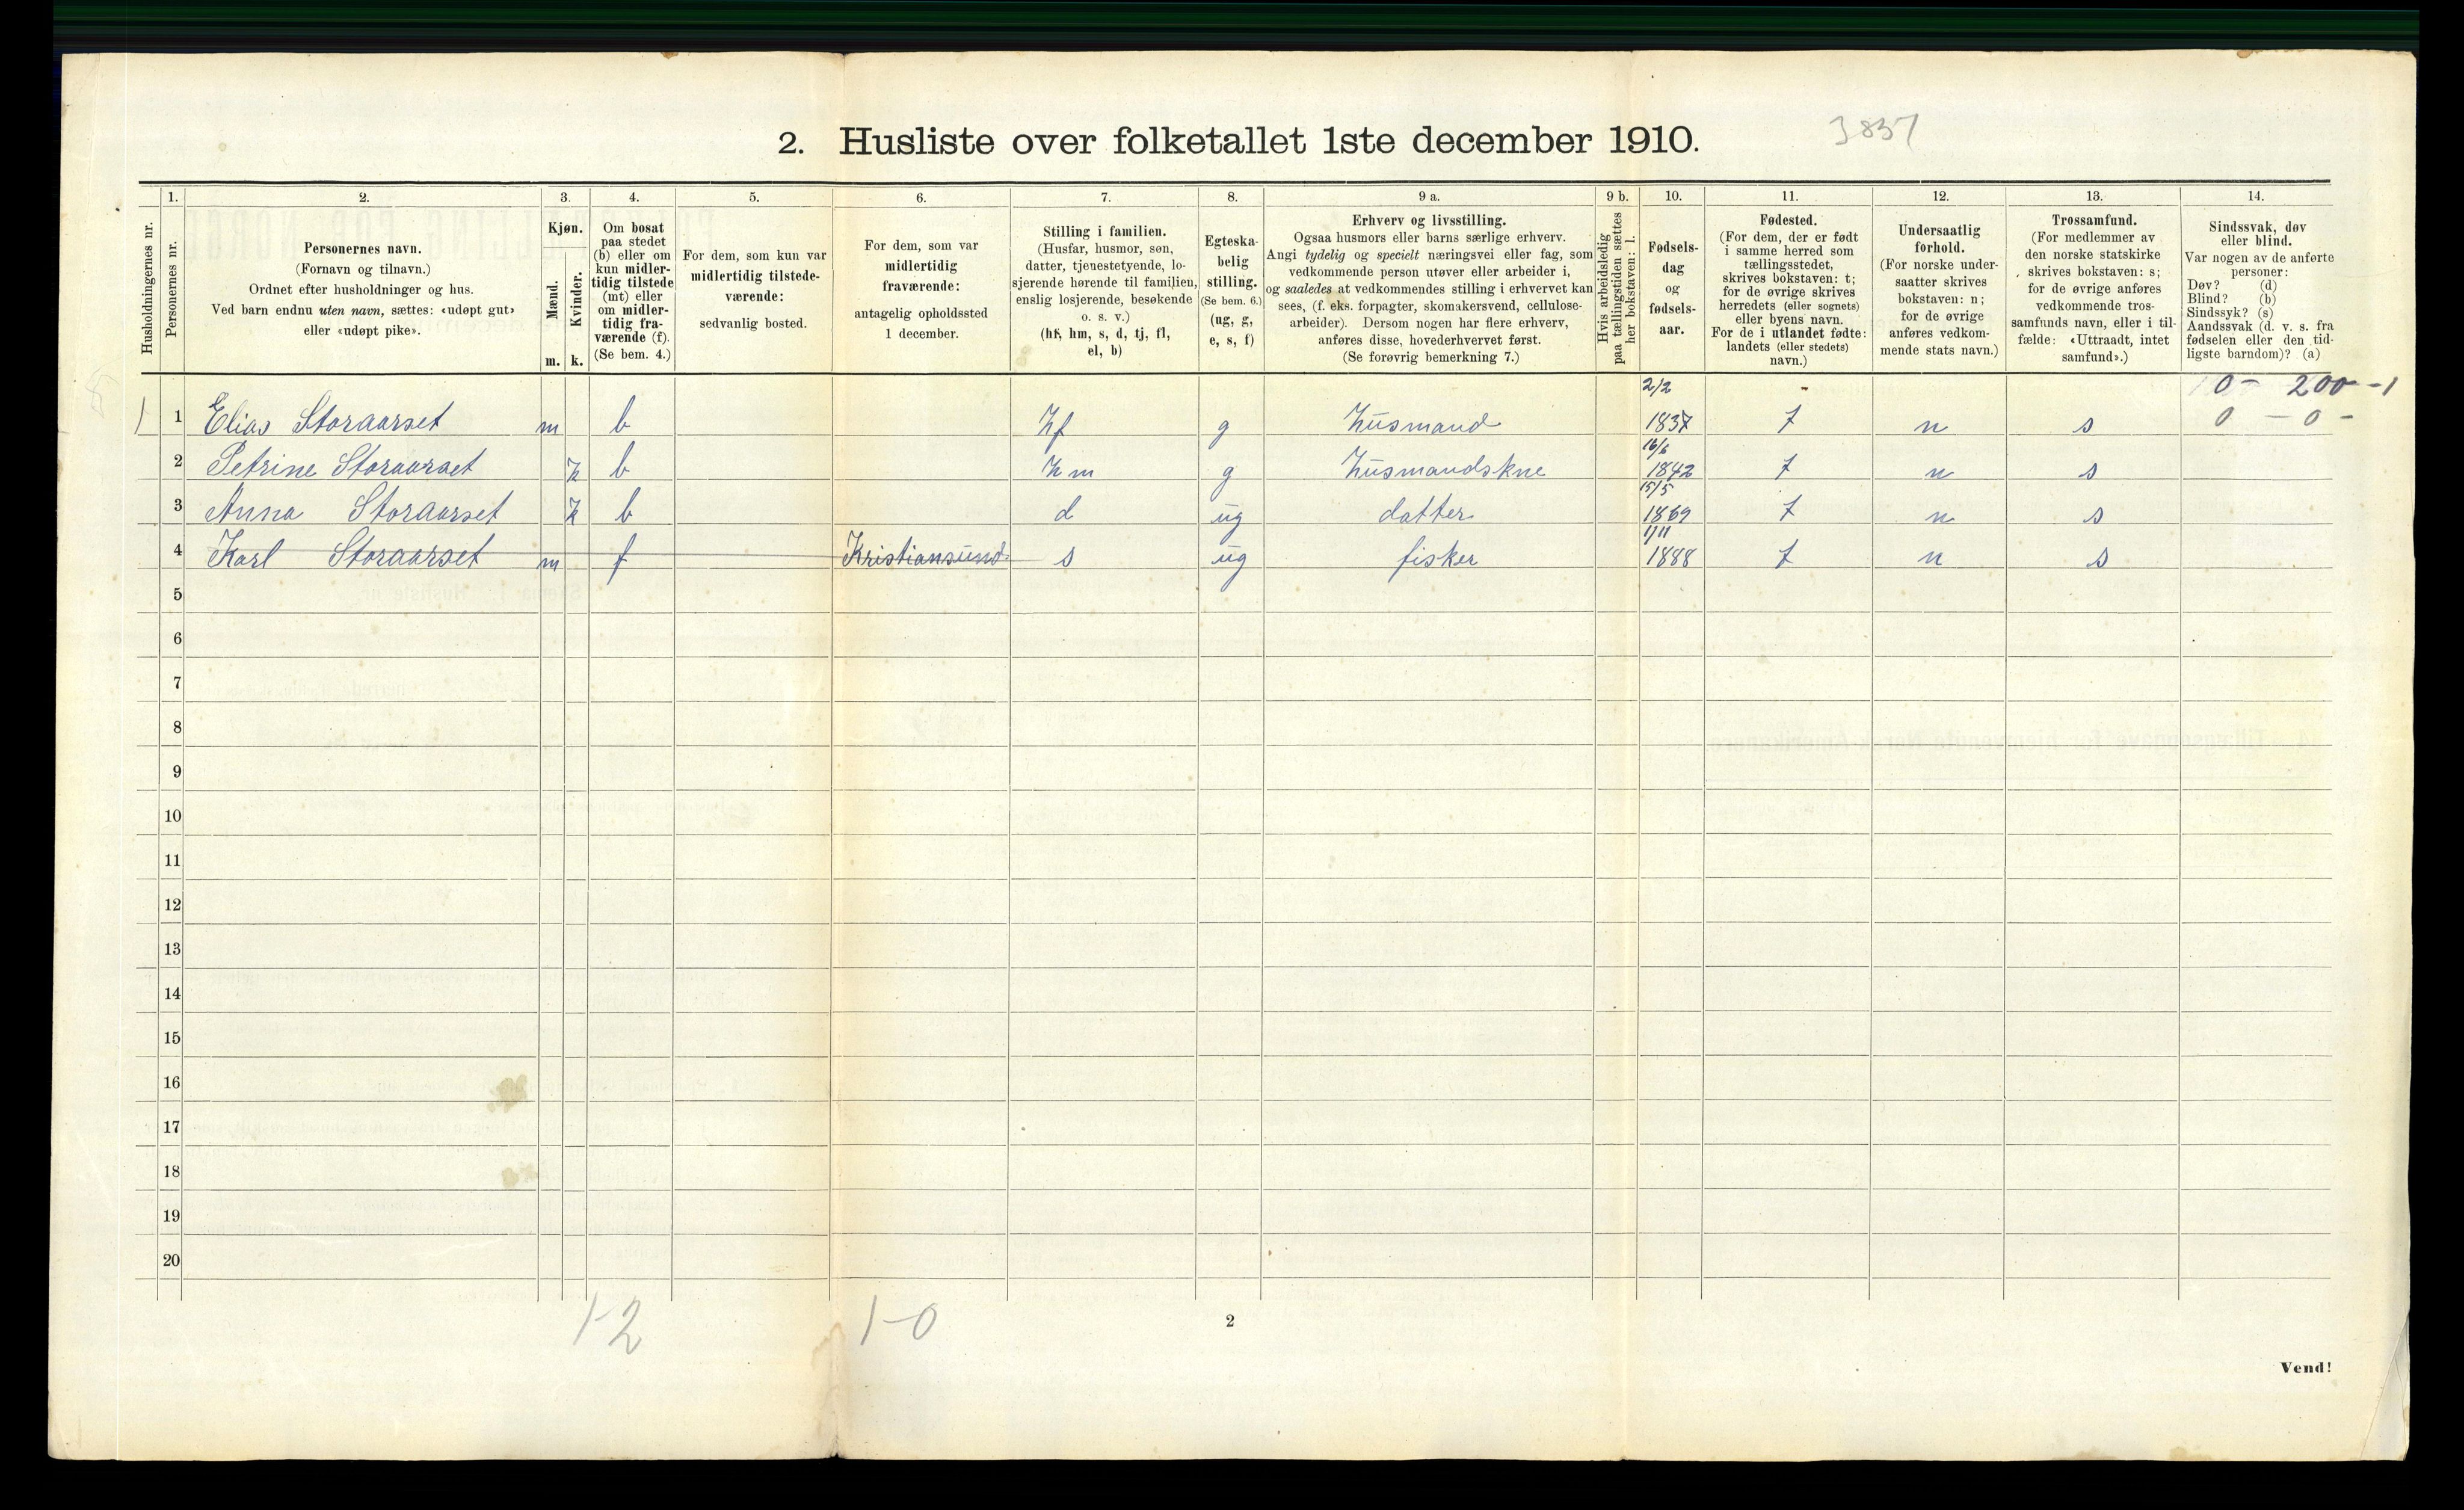 2. Husliste over folketallet 1ste december 1910.
3837
1. 2. 3. 4. 5. 6. 7. 8. 9 a. 9 b. 10. 11. 12. 13. 14.
Husholdningernes nr.
Personernes nr.
Personernes navn.
(Fornavn og tilnavn.)
Ordnet efter husholdninger og hus.
Ved barn endnu uten navn, sættes: «udøpt gut»
eller «udøpt pike».
Kjøn.
Mænd.
Kvinder.
m. k.
Om bosat
paa stedet
(b) eller om
kun midler-
tidig tilstede
(mt) eller
om midler-
tidig fra-
værende (f).
(Se bem. 4.)
For dem, som kun var
midlertidig tilstede-
værende:
sedvanlig bosted.
For dem, som var
midlertidig
fraværende:
antagelig opholdssted
1 december.
Stilling i familien.
(Husfar, husmor, søn,
datter, tjenestetyende, lo-
sjerende hørende til familien,
enslig losjerende, besøkende
o. s. v.)
(hf, hm, s, d, tj, fl,
el, b)
Egteska-
belig
stilling.
(Se bem. 6.)
(ug, g,
e, s, f)
Erhverv og livsstilling.
Ogsaa husmors eller barns særlige erhverv.
Angi tydelig og specielt næringsvei eller fag, som
vedkommende person utøver eller arbeider i,
og saaledes at vedkommendes stilling i erhvervet kan
sees, (f. eks. forpagter, skomakersvend, cellulose-
arbeider). Dersom nogen har flere erhverv,
anføres disse, hovederhvervet først.
(Se forøvrig bemerkning 7.)
Hvis arbeidsledig
paa tællingstiden sættes
her bokstaven: l.
Fødsels-
dag
og
fødsels-
aar.
Fødested.
(For dem, der er født
i samme herred som
tællingsstedet,
skrives bokstaven: t;
for de øvrige skrives
herredets (eller sognets)
eller byens navn.
For de i utlandet fødte:
landets (eller stedets)
navn.)
Undersaatlig
forhold.
(For norske under-
saatter skrives
bokstaven: n;
for de øvrige
anføres vedkom-
mende stats navn.)
Trossamfund.
(For medlemmer av
den norske statskirke
skrives bokstaven: s;
for de øvrige anføres
vedkommende tros-
samfunds navn, eller i til-
fælde: «Uttraadt, intet
samfund».)
Sindssvak, døv
eller blind.
Var nogen av de anførte
personer:
Døv? (d)
Blind? (b)
Sindssyk? (s)
Aandssvak (d. v. s. fra
fødselen eller den tid-
ligste barndom)? (a)
2/2 0 - 200 - 1
1 1 Elias Storaarset m b hf g Husmand 1837 t n s 0 - 0 -
16/6
2 Petrine Storaarset k b hm g Husmandskne 1842 t n s
15/5
3 Anna Storaarset k b d ug datter 1869 t n s
1/11
4 Karl Storaarset m f Kristiansund s ug fisker 1888 t n s
5
6
7
8
9
10
11
12
13
14
15
16
17
18
19
20
1-2 1-0
2
Vend!